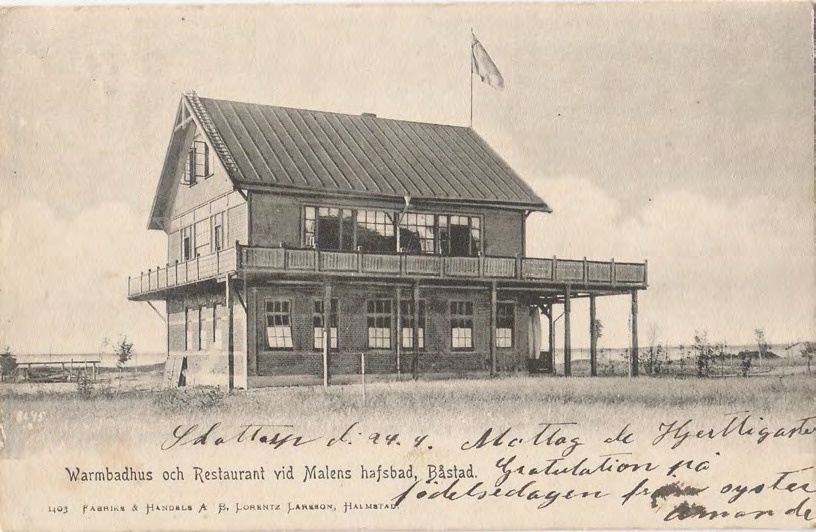 8645
Skottorp d. 24. 4. Mottag de Hjertligaste
Gratulation på
födelsedagen från syster
Amanda
Warmbadhus och Restaurant vid Malens hafsbad, Båstad.
1403 FABRIKS & HANDELS A B, LORENTZ LARSSON, HALMSTAD.